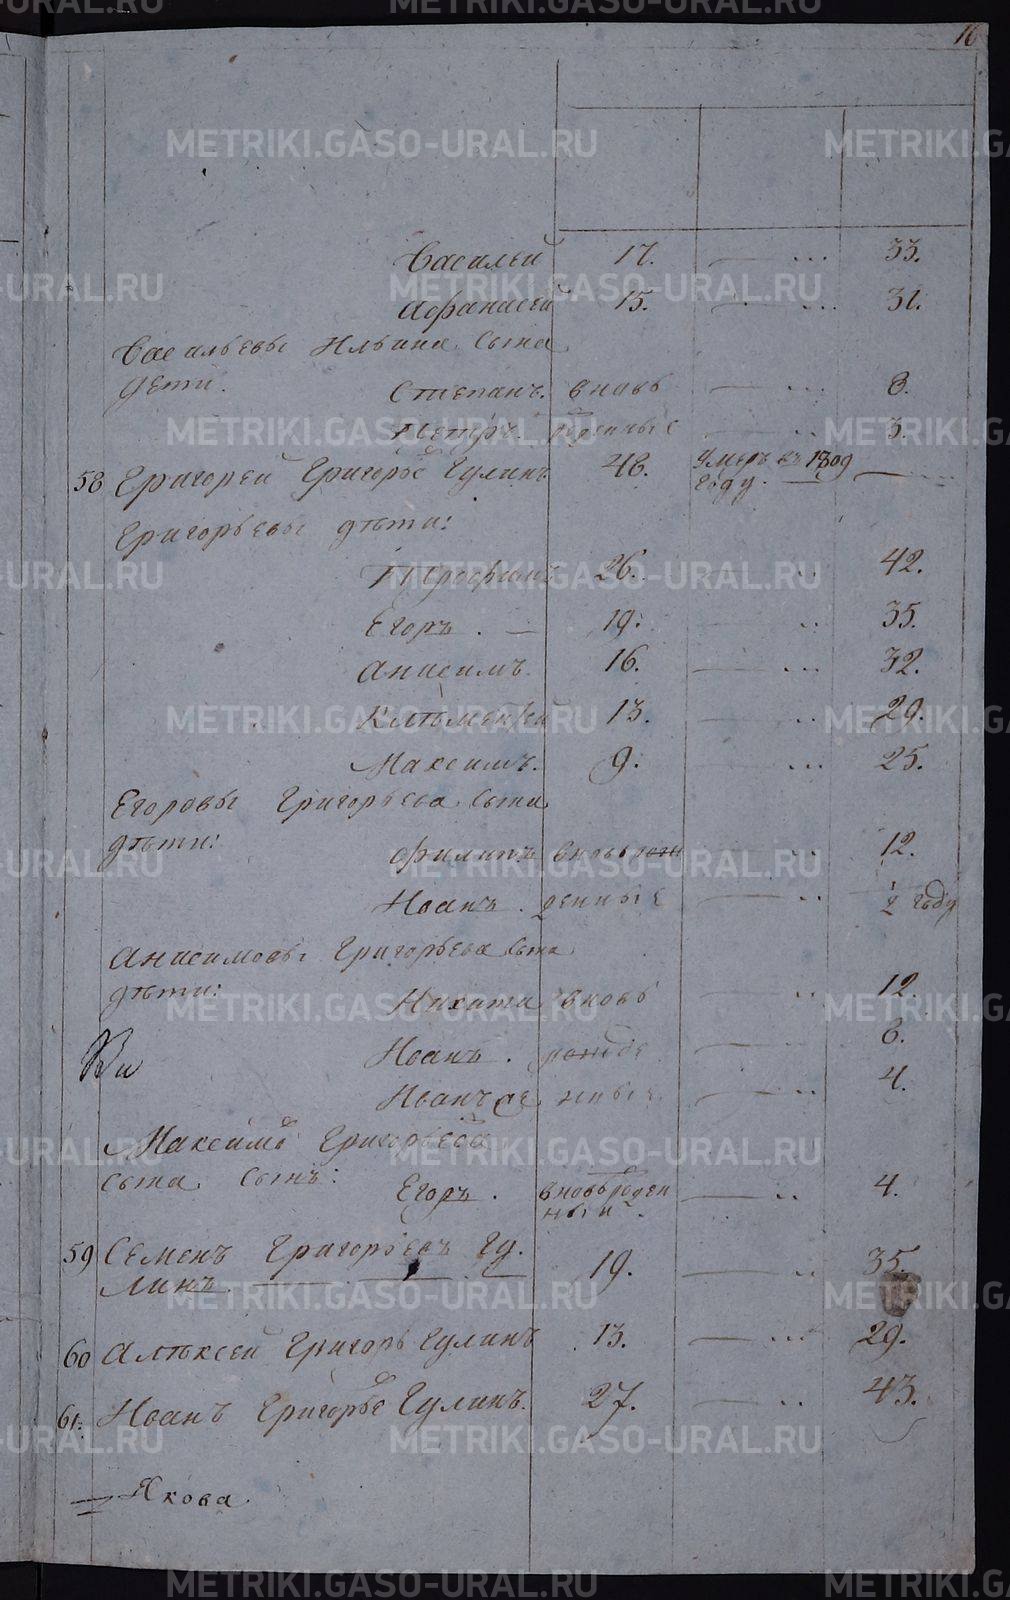 16
Василей 17. — ... 33.
Афанасей 15. — ... 31.
Васильевы Ильина сына
дети.
Степанъ. вновь — ... 8.
Петръ. рожденные — .. 3.
58 Григорей Григорьев Гулинъ 48. Умеръ въ 1809 —
году. —
Григорьевы дѣти:
Трофимъ 26. — .. 42.
Егоръ. — 19. — .. 35.
Анисимъ 16. — ... 32.
Клѣментей 13. — .. 29.
Максимъ. 9. — ... 25.
Егоровы Григорьева сына
дѣти:
Филипъ вновьрож — .. 12.
Иванъ. денные — .. 1/2 году
Анисимовы Григорьева сына
дѣти:
Никита вновь — .. 12.
Иванъ. рожде — .. 8.
Иванъ же нные — .. 4.
Максима Григорьева
сына сынъ:
Егоръ. вновьрожден — .. 4.
ный.
59 Семенъ Григорьевъ Гу. 19. — .. 35.
линъ. —
60 Алѣксей Григорь Гулинъ 13. — ... 29.
61: Иванъ Григорье Гулинъ. 27. — .. 43.
Якова
METRIKI.GASO-URAL.RU